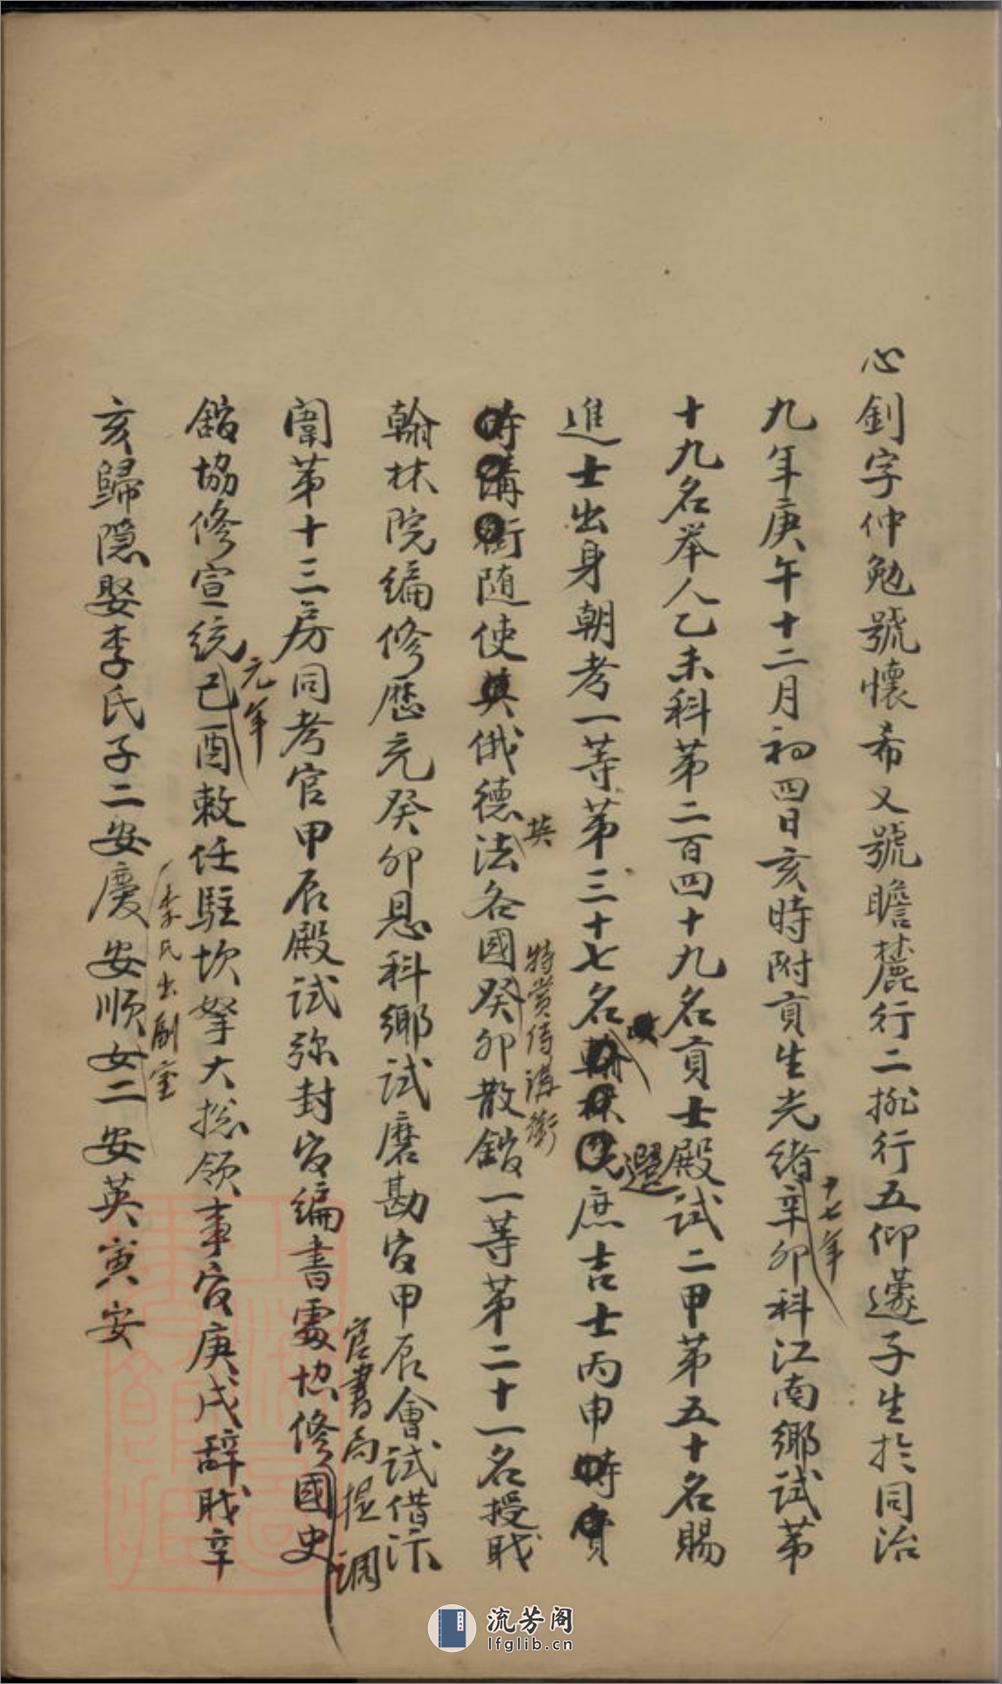 心釗字仲勉號懷希又號瞻麓行二排行五仰蘧子生於同治
九年庚午十二月初四日亥時附貢生光緒十七年辛卯科江南鄉試第
十九名举人乙未科第二百四十九名貢士殿試二甲第五十名賜
進士出身朝考一等第三十七名選庶吉士丙申
随使俄德法英各國特赏侍講銜癸卯散館一等第二十一名授职
翰林院编修歷充癸卯恩科鄉试磨勘官甲辰會試借汴
闈第十三房同考官甲辰殿試弥封官编書處协修官書局提調國史
館協修宣統元年己酉敕任駐坎拏大总领事官庚戌辞职辛
亥歸隐娶李氏子二安慶李氏出副室安顺女二安英寅安
流芳阁
lfglib.cn